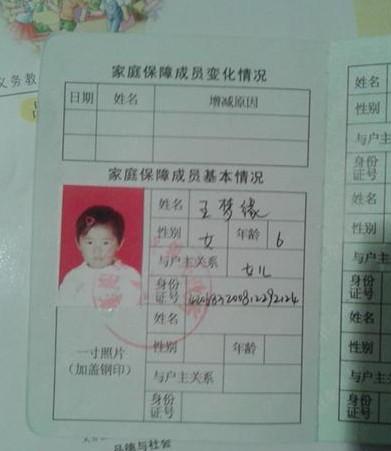 义务教
家庭保障成员变化情况
日期 姓名 增减原因
家庭保障成员基本情况
姓名 王梦缘
性别 女 年龄 6
与户主关系 女儿
身份证号
姓名
一寸照片
(加盖钢印)
性别 年龄
与户主关系
身份证号
姓名
性别
与户主
身份证号
姓名
性别
与户主
身份证号
姓名
性别
与户主
身份证号
品德与社会